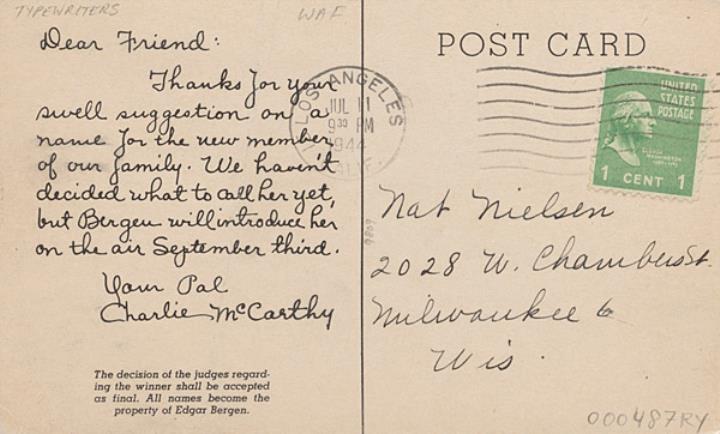 TYPEWRITERS
WAF
Dear Friend:
Thanks for your
swell suggestion on a
name for the new member
of our family. We haven't
decided what to call her yet,
but Bergen will introduce her
on the air September third.
Your Pal
Charlie McCarthy
The decision of the judges regard-
ing the winner shall be accepted
as final. All names become the
property of Edgar Bergen.
POST CARD
LOS ANGELES
JUL 11
9 30 PM
1944
CALIF.
UNITED
STATES
POSTAGE
1 CENT 1
Nat Nielsen
2028 W. Chambers St.
Milwaukee 6
Wis.
000487RY